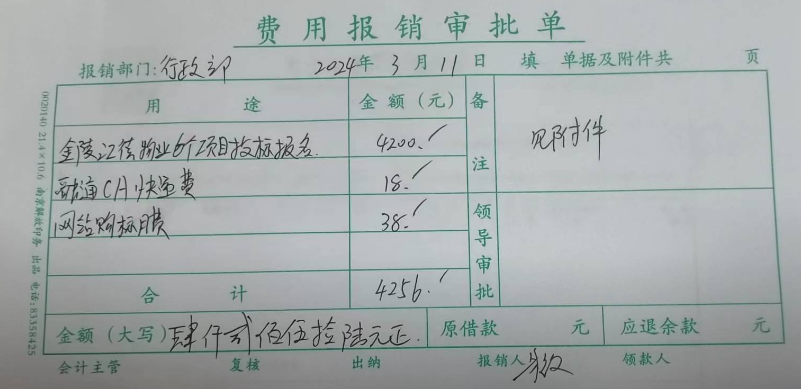 费用报销审批单
报销部门:行政部 2024年3月11日 填 单据及附件共 页
用途 金额(元) 备注 见附件
金陵江信物业6个项目投标报名 4200.
CA快递费 18.
网站购标费 38.
领导审批
合计 4256.
金额(大写)肆仟贰佰伍拾陆元正. 原借款 元 应退余款 元
会计主管 复核 出纳 报销人 领款人
0020140 21.4×10.6 南京解放印务 出品 电话:83358425